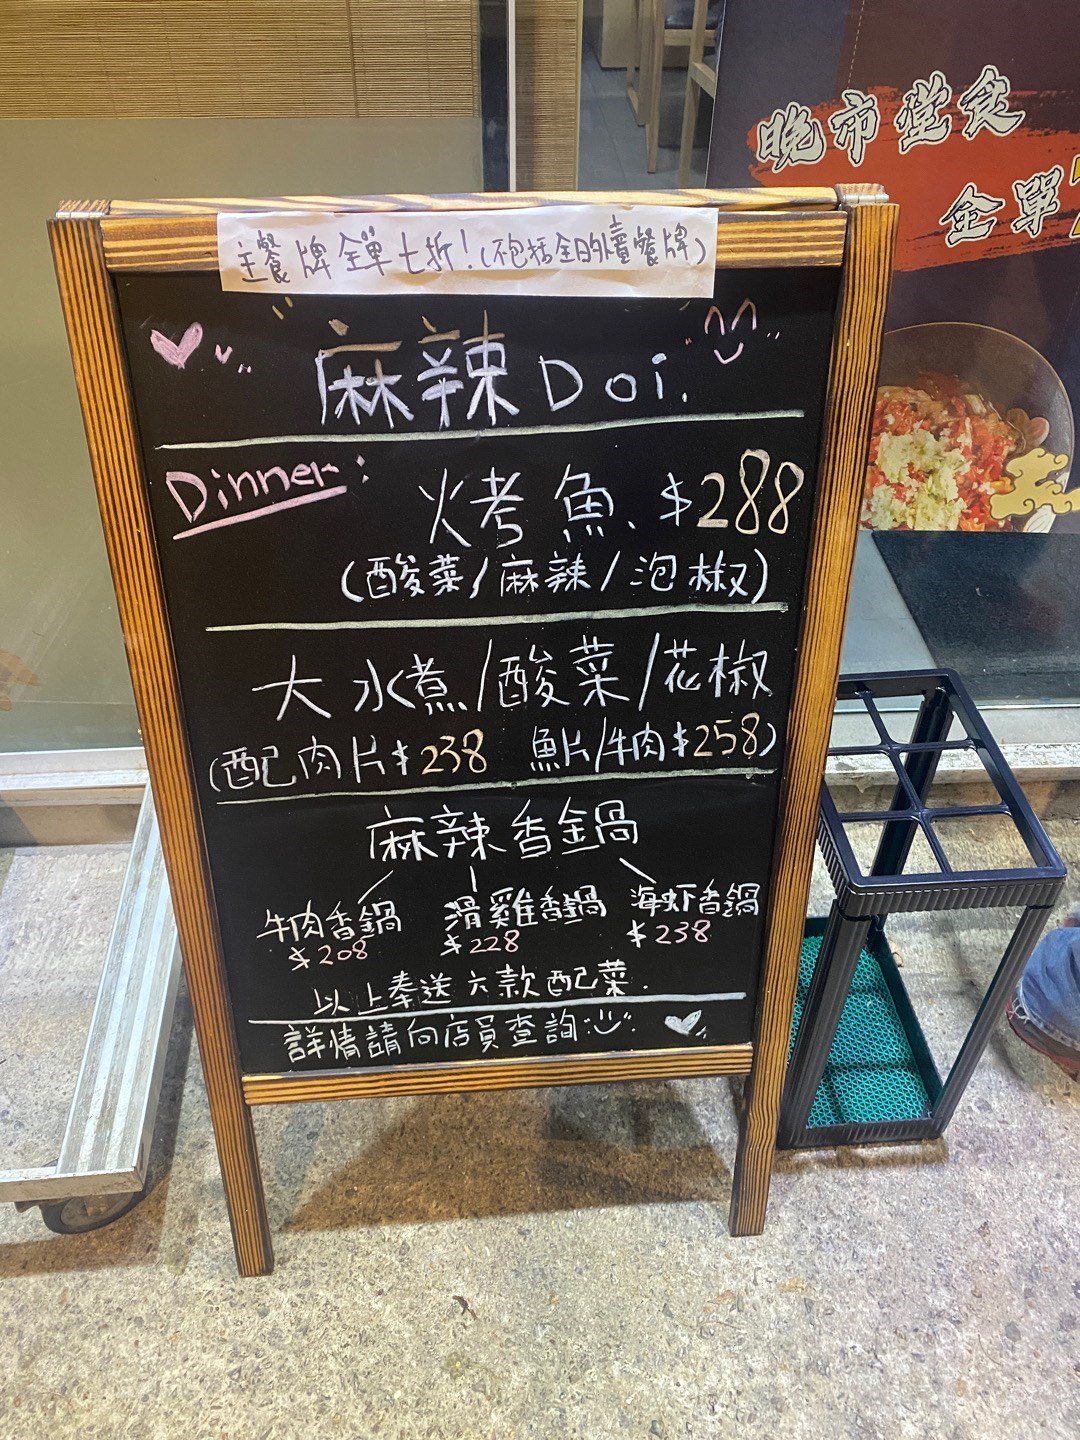 晚市堂食
全單
主餐牌全單七折!(不包括全日外賣餐牌)
麻辣 Doi.
Dinner:
火考魚、$288
(酸菜/麻辣/泡椒)
大水煮/酸菜/花椒
(配肉片$238 魚片/牛肉$258)
麻辣香鍋
牛肉香鍋 滑雞香鍋 海虾香鍋
$208 $228 $238
以上奉送六款配菜.
詳情請向店員查詢